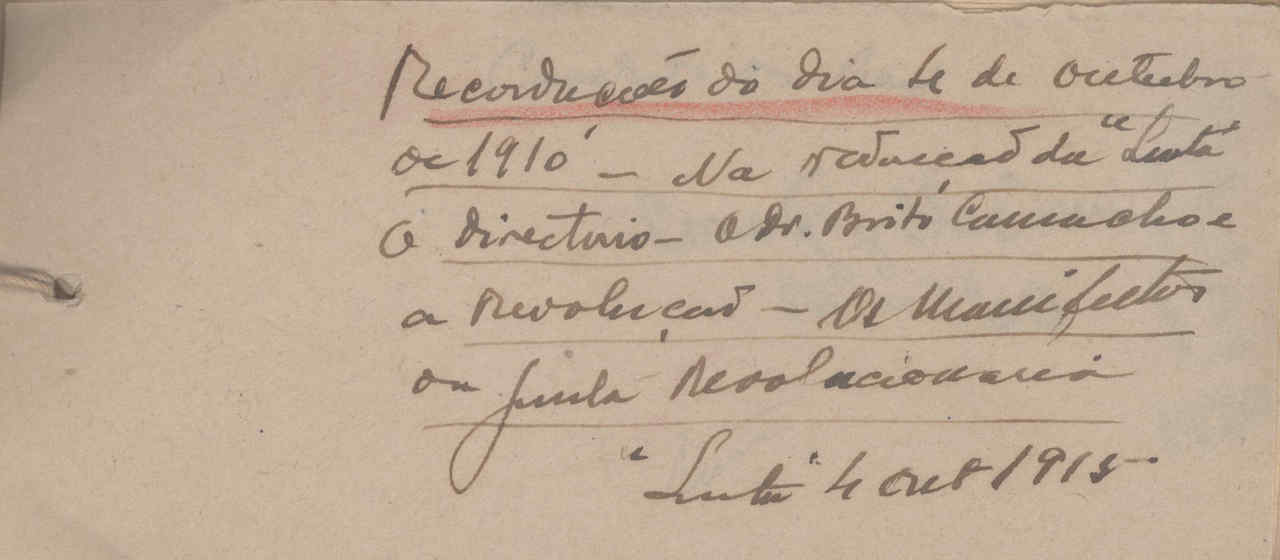 Recordações do dia 4 de outubro
de 1910 — Na redacção da "Lucta"
O directorio — O dr. Brito Camacho e
a revolução — Os manifestos
da junta revolucionaria
"Lucta" 4 out 1915